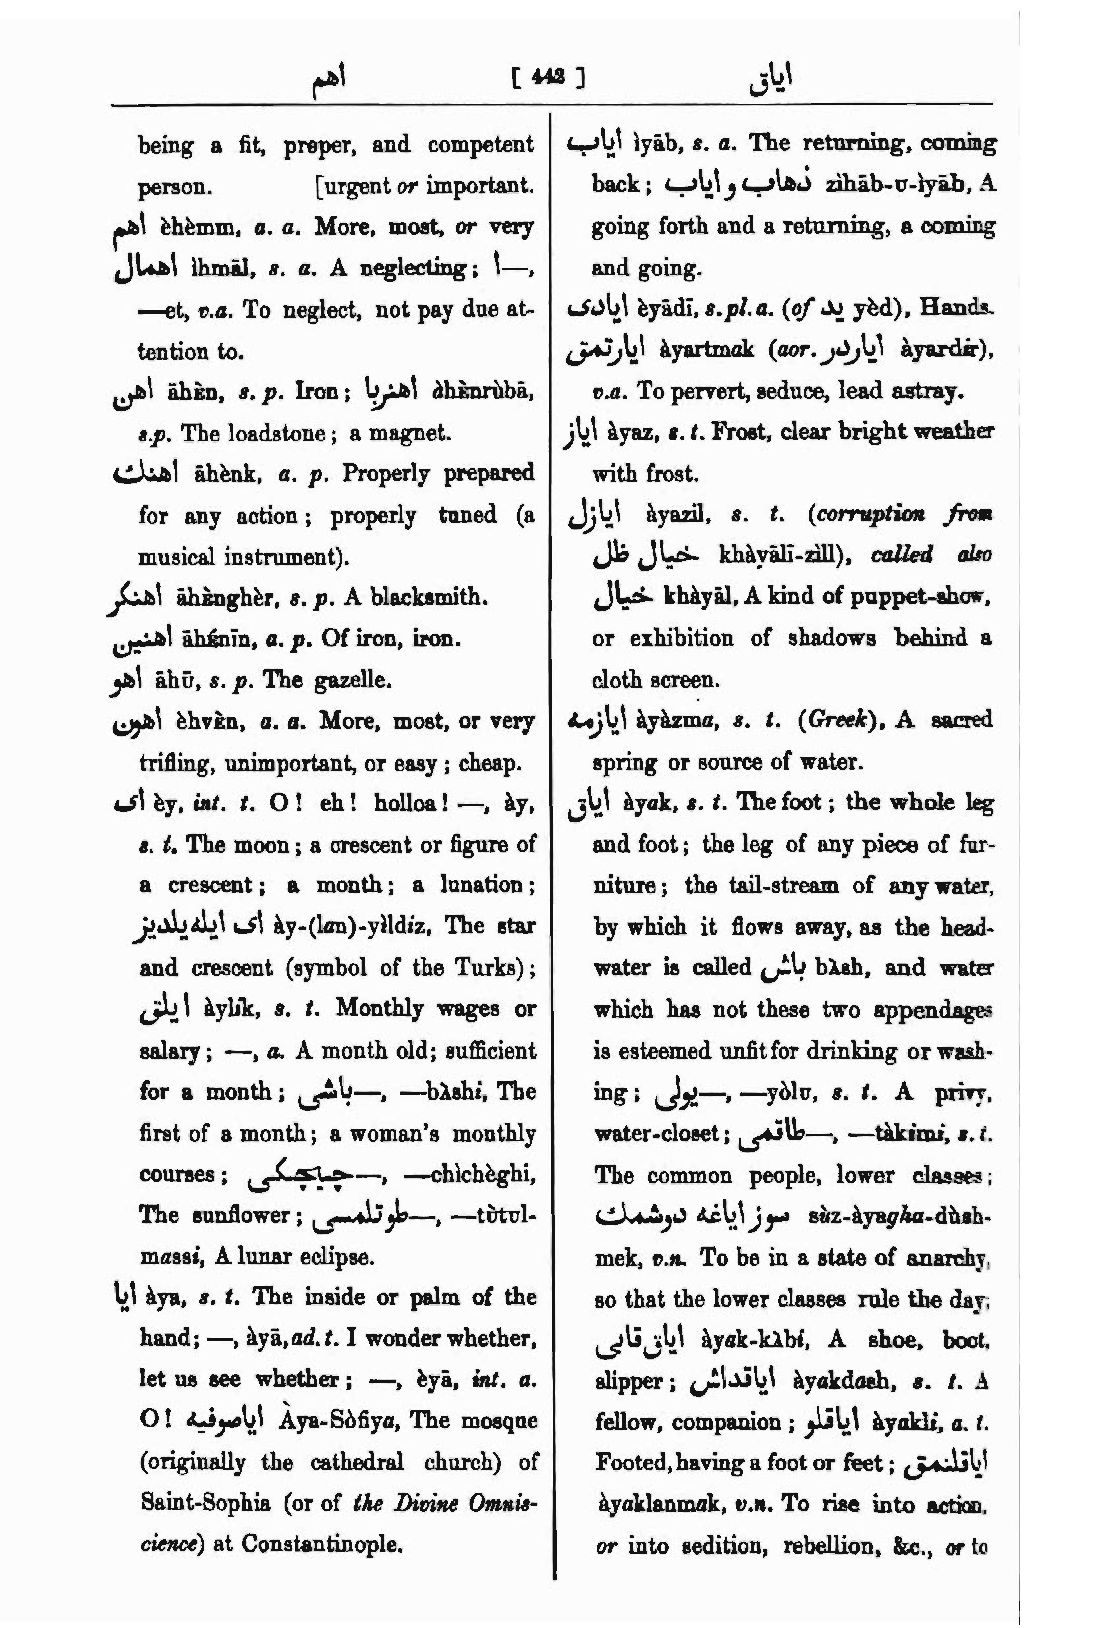 اهم [ 442 ] اياق
being a fit, proper, and competent
person. [urgent or important.
اهم èhèmm, a. a. More, most, or very
اهمال ìhmāl, s. a. A neglecting; ا—,
—et, v.a. To neglect, not pay due at-
tention to.
اهن āhèn, s. p. Iron; اهنربا àhènrùbā,
s.p. The loadstone; a magnet.
اهنك āhènk, a. p. Properly prepared
for any action; properly tuned (a
musical instrument).
اهنكر āhènghèr, s. p. A blacksmith.
اهنين āhénīn, a. p. Of iron, iron.
اهو āhū, s. p. The gazelle.
اهون èhvèn, a. a. More, most, or very
trifling, unimportant, or easy; cheap.
اى èy, int. t. O! eh! holloa! —, ày,
s. t. The moon; a crescent or figure of
a crescent; a month; a lunation;
اى ايله يلديز ày-(lan)-yìldiz, The star
and crescent (symbol of the Turks);
ايلق àylík, s. t. Monthly wages or
salary; —, a. A month old; sufficient
for a month; باشى—, —bàshi, The
first of a month; a woman's monthly
courses; چيچكى—, —chìchèghi,
The sunflower; طوتلمسى—, —tùtul-
massi, A lunar eclipse.
ايا àya, s. t. The inside or palm of the
hand; —, àyā, ad. t. I wonder whether,
let us see whether; —, èyā, int. a.
O! اياصوفيه Àya-Sòfiya, The mosque
(originally the cathedral church) of
Saint-Sophia (or of the Divine Omnis-
cience) at Constantinople.
اياب ìyāb, s. a. The returning, coming
back; ذهاب و اياب zìhāb-u-ìyāb, A
going forth and a returning, a coming
and going.
ايادى èyādī, s.pl.a. (of يد yèd), Hands.
ايارتمق àyartmak (aor. اياردر àyardír),
v.a. To pervert, seduce, lead astray.
اياز àyaz, s. t. Frost, clear bright weather
with frost.
ايازل àyazil, s. t. (corruption from
خيال ظل khàyālī-zìll), called also
خيال khàyāl, A kind of puppet-show,
or exhibition of shadows behind a
cloth screen.
ايازمه àyàzma, s. t. (Greek), A sacred
spring or source of water.
اياق àyak, s. t. The foot; the whole leg
and foot; the leg of any piece of fur-
niture; the tail-stream of any water,
by which it flows away, as the head-
water is called باش bàsh, and water
which has not these two appendages
is esteemed unfit for drinking or wash-
ing; يولى—, —yòlu, s. t. A privy,
water-closet; طاقمى—, —tàkimi, s. t.
The common people, lower classes;
سوز اياغه دوشمك sùz-àyagha-dùsh-
mek, v.n. To be in a state of anarchy,
so that the lower classes rule the day;
اياق قابى àyak-kàbí, A shoe, boot,
slipper; اياقداش àyakdash, s. t. A
fellow, companion; اياقلو àyaklí, a. t.
Footed, having a foot or feet; اياقلنمق
àyaklanmak, v.n. To rise into action,
or into sedition, rebellion, &c., or to